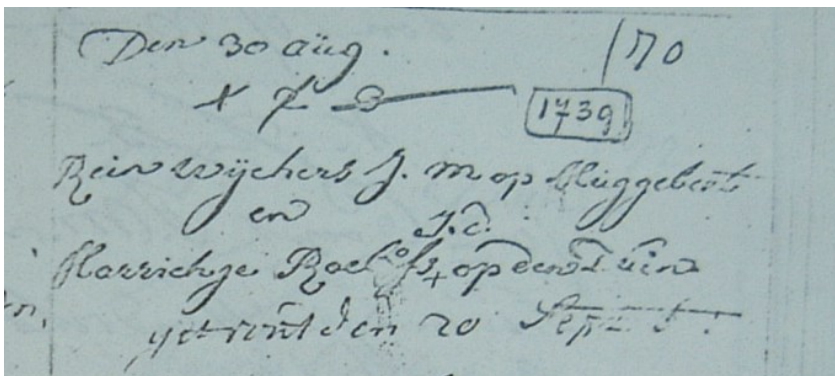 Den 30 aüg. 170
1739
Rein wijchers J. m op Müggebeet
en J. d.
Harrichje Roelofs op den Tuin
getroüt den 20 Sept